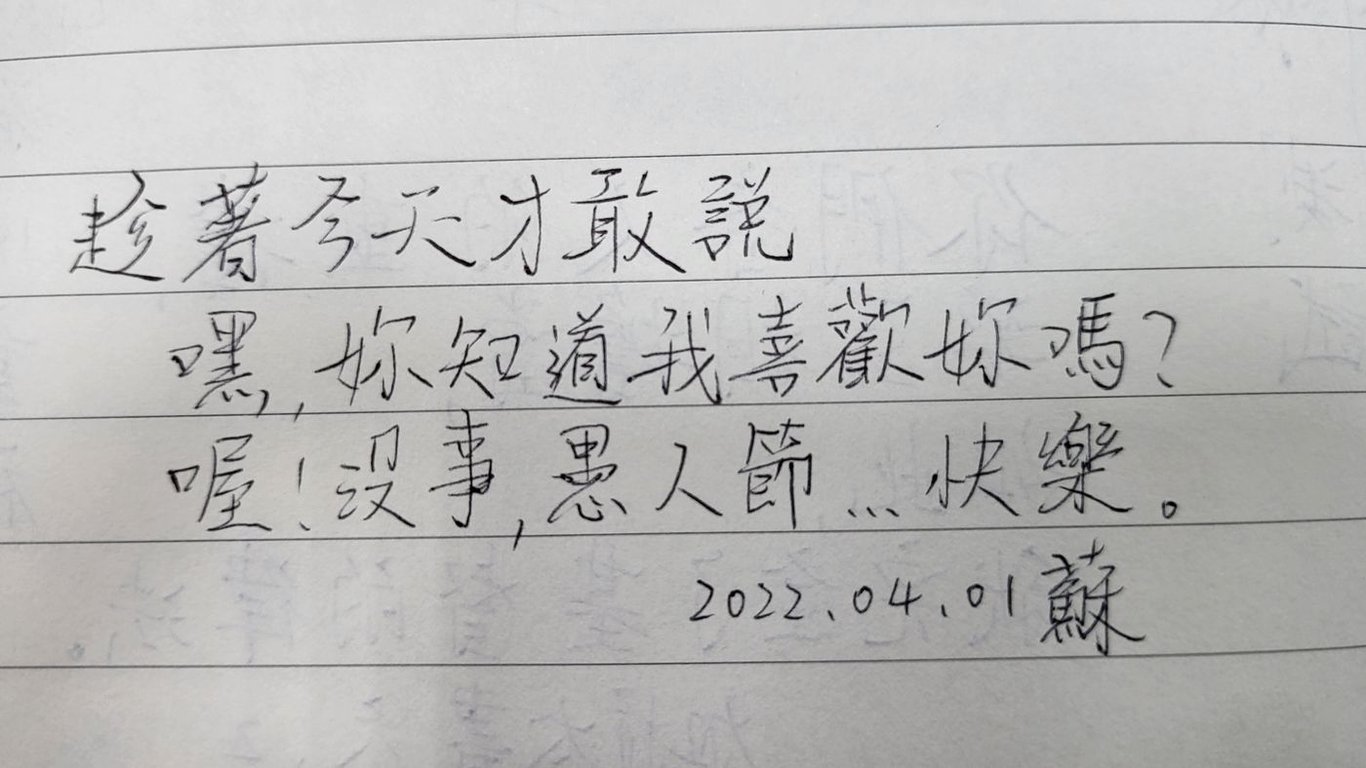 趁著今天才敢說
嘿,妳知道我喜歡妳嗎?
喔!沒事,愚人節...快樂。
2022.04.01 蘇